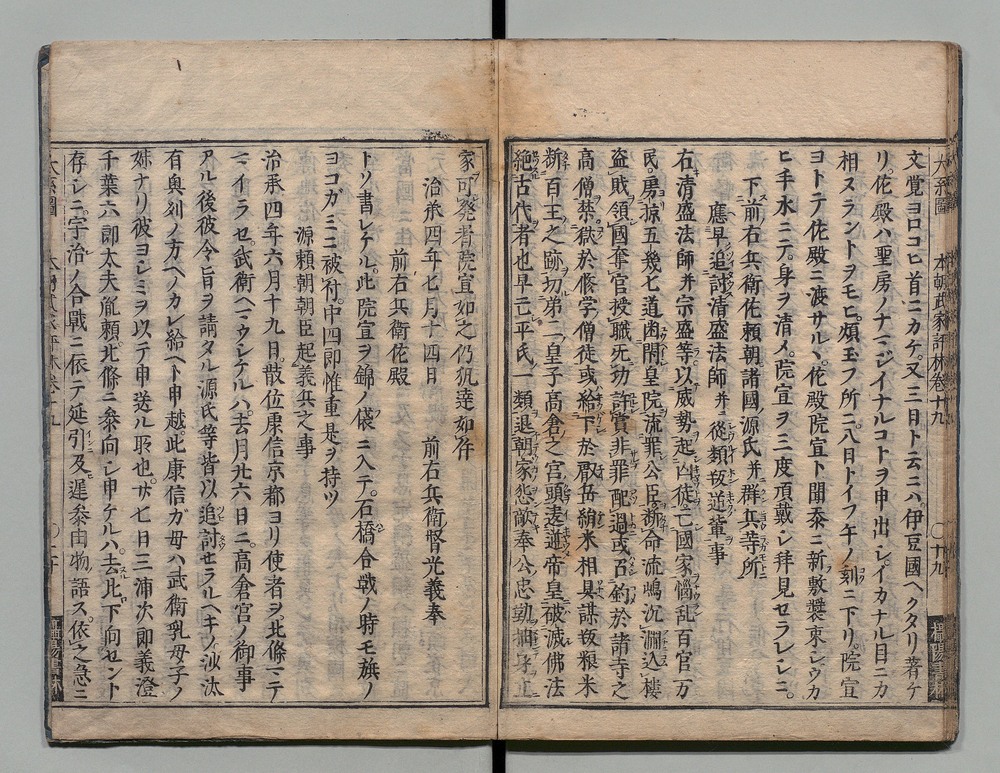 本朝武家評林巻十九
〇十九
文覚ヨロコヒ首ニカケ又三日ト云ニハ伊豆國ヘクタリ著ケ
リ佐殿ハ聖房ノナマジイナルコトヲ申出シイカナル目ニカ
相ヌラントヲモヒ煩玉フ所ニ八日トイフ午ノ刻ニ下リ院宣
ヨトテ佐殿ニ渡サル丶佐殿院宣ト聞忝ニ新敷裝束シウカ
ヒ手水ニテ身ヲ清メ院宣ヲ三度頂戴シ拜見セラレシニ
下前右兵衛佐頼朝諸國源氏并群兵等所
應早追討清盛法師并ニ從類叛逆輩事
右清盛法師并宗盛等以威勢起凶徒亡國家惱乱百官万
民房掠五幾七道幽閇皇院流罪公臣斷命流嶋沉淵込樓
盜賊領國奪官授職无功許賞非罪配過或召釣於諸寺之
高僧禁獄於修学僧徒或給下於叡岳絹米相具謀叛粮米
斷百王之跡切弟二皇子高倉之宮頭違逆帝皇破滅佛法
絶古代者也早亡平氏一類退朝家怨敵奉公忠勤抽
家可発者院宣如之仍執達如件
治承四年七月十四日　前右兵衛督光義奉
前右兵衛佐殿
トソ書レケル此院宣ヲ錦ノ袋ニ入テ石橋合戰ノ時モ旗ノ
ヨコガミニ被付中四郎惟重是ヲ持ツ
源頼朝朝臣起義兵之事
治承四年六月十九日散位康信京都ヨリ使者ヲ北條マテ
マイラセ武衛ヘマウシケルハ去月廿六日ニ高倉宮ノ御事
アル後彼令旨ヲ請タル源氏等皆以追討セラルヘキノ沙汰
有奥刕ノ方ヘノカレ給ヘト申越此康信ガ母ハ武衛乳母子ノ
妹ナリ彼ヨシミヲ以テ申送ル耴也サ七日三浦次郎義澄
千葉六郎太夫胤頼北條ニ參向シ申ケルハ去比下向セント
存シニ宇治ノ合戰ニ依テ延引及遅參由物語ス依之急ニ